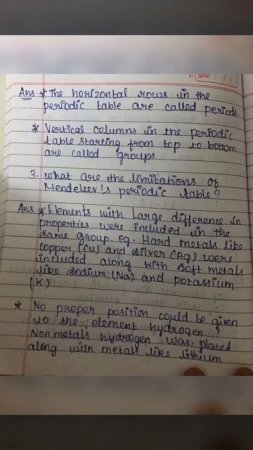 Ans * The horizontal rows in the
periodic table are called periods
* Vertical columns in the periodic
table starting from top to bottom
are called groups
3. what are the limitations of
Mendeleev's periodic table?
Ans * Elements with large difference in
properties were included in the
same group. eg. Hard metals like
copper (Cu) and silver (Ag) were
included along with soft metals
like sodium (Na) and potassium
(K)
* No proper position could be given
to the element hydrogen.
Non metals hydrogen was placed
along with metals like lithium